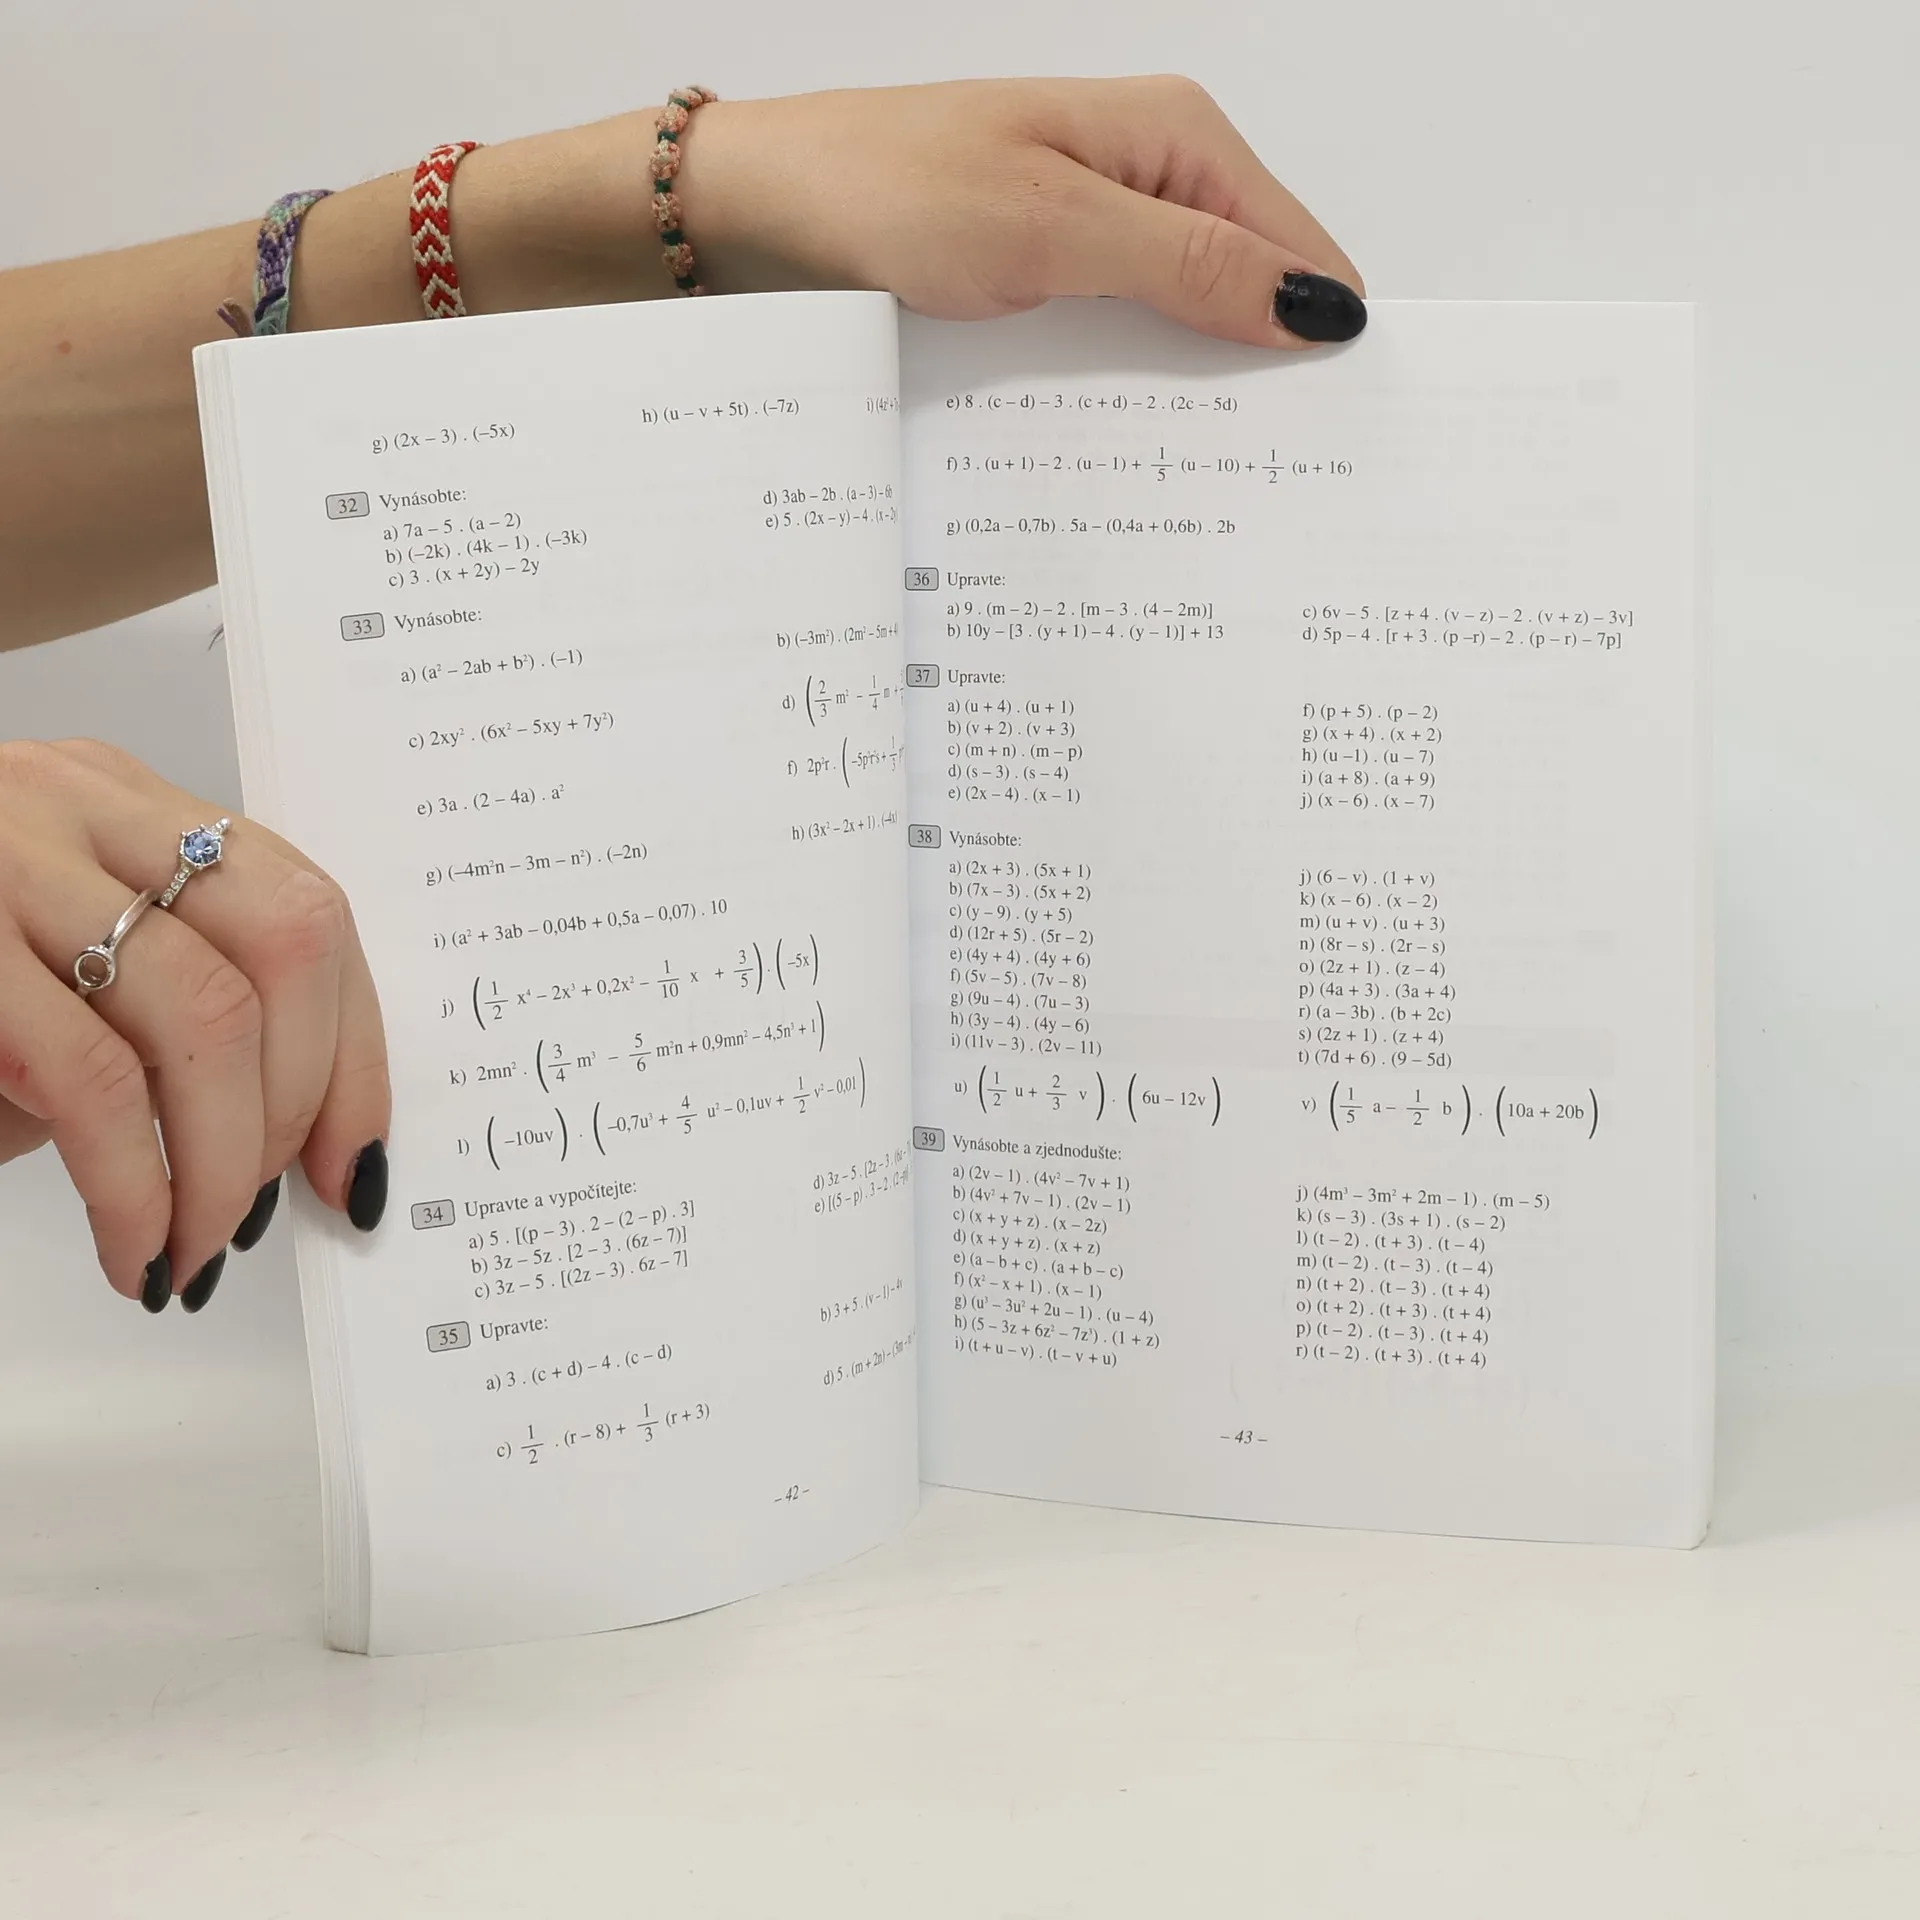 h) (u – v + 5t) . (–7z)
g) (2x – 3) . (–5x)
32 Vynásobte:
a) 7a – 5 . (a – 2)
b) (–2k) . (4k – 1) . (–3k)
c) 3 . (x + 2y) – 2y
d) 3ab – 2b . (a – 3) – 6b
e) 5 . (2x – y) – 4 . (x – 2y
33 Vynásobte:
a) (a² – 2ab + b²) . (–1)
b) (–3m²) . (2m² – 5m + 4
c) 2xy² . (6x² – 5xy + 7y²)
d) (2/3 m² – 1/4 m +
e) 3a . (2 – 4a) . a²
f) 2p²r . (
g) (–4m²n – 3m – n²) . (–2n)
h) (3x² – 2x + 1) . (–4x)
i) (a² + 3ab – 0,04b + 0,5a – 0,07) . 10
j) (1/2 x⁴ – 2x³ + 0,2x² – 1/10 x + 3/5) . (–5x)
k) 2mn² . (3/4 m³ – 5/6 m²n + 0,9mn² – 4,5n³ + 1)
l) (–10uv) . (–0,7u³ + 4/5 u² – 0,1uv + 1/2 v² – 0,01)
34 Upravte a vypočítejte:
a) 5 . [(p – 3) . 2 – (2 – p) . 3]
b) 3z – 5z . [2 – 3 . (6z – 7)]
c) 3z – 5 . [(2z – 3) . 6z – 7]
d) 3z – 5 . [2z – 3 . (6z –
e) [(5 – p) . 3 – 2 . (2–p)
35 Upravte:
a) 3 . (c + d) – 4 . (c – d)
b) 3 + 5 . (v – 1) – 4v
c) 1/2 . (r – 8) + 1/3 (r + 3)
d) 5 . (m + 2n) – (3m –
– 42 –
e) 8 . (c – d) – 3 . (c + d) – 2 . (2c – 5d)
f) 3 . (u + 1) – 2 . (u – 1) + 1/5 (u – 10) + 1/2 (u + 16)
g) (0,2a – 0,7b) . 5a – (0,4a + 0,6b) . 2b
36 Upravte:
a) 9 . (m – 2) – 2 . [m – 3 . (4 – 2m)]
b) 10y – [3 . (y + 1) – 4 . (y – 1)] + 13
c) 6v – 5 . [z + 4 . (v – z) – 2 . (v + z) – 3v]
d) 5p – 4 . [r + 3 . (p –r) – 2 . (p – r) – 7p]
37 Upravte:
a) (u + 4) . (u + 1)
b) (v + 2) . (v + 3)
c) (m + n) . (m – p)
d) (s – 3) . (s – 4)
e) (2x – 4) . (x – 1)
f) (p + 5) . (p – 2)
g) (x + 4) . (x + 2)
h) (u –1) . (u – 7)
i) (a + 8) . (a + 9)
j) (x – 6) . (x – 7)
38 Vynásobte:
a) (2x + 3) . (5x + 1)
b) (7x – 3) . (5x + 2)
c) (y – 9) . (y + 5)
d) (12r + 5) . (5r – 2)
e) (4y + 4) . (4y + 6)
f) (5v – 5) . (7v – 8)
g) (9u – 4) . (7u – 3)
h) (3y – 4) . (4y – 6)
i) (11v – 3) . (2v – 11)
j) (6 – v) . (1 + v)
k) (x – 6) . (x – 2)
m) (u + v) . (u + 3)
n) (8r – s) . (2r – s)
o) (2z + 1) . (z – 4)
p) (4a + 3) . (3a + 4)
r) (a – 3b) . (b + 2c)
s) (2z + 1) . (z + 4)
t) (7d + 6) . (9 – 5d)
u) (1/2 u + 2/3 v) . (6u – 12v)
v) (1/5 a – 1/2 b) . (10a + 20b)
39 Vynásobte a zjednodušte:
a) (2v – 1) . (4v² – 7v + 1)
b) (4v² + 7v – 1) . (2v – 1)
c) (x + y + z) . (x – 2z)
d) (x + y + z) . (x + z)
e) (a – b + c) . (a + b – c)
f) (x² – x + 1) . (x – 1)
g) (u³ – 3u² + 2u – 1) . (u – 4)
h) (5 – 3z + 6z² – 7z³) . (1 + z)
i) (t + u – v) . (t – v + u)
j) (4m³ – 3m² + 2m – 1) . (m – 5)
k) (s – 3) . (3s + 1) . (s – 2)
l) (t – 2) . (t + 3) . (t – 4)
m) (t – 2) . (t – 3) . (t – 4)
n) (t + 2) . (t – 3) . (t + 4)
o) (t + 2) . (t + 3) . (t + 4)
p) (t – 2) . (t – 3) . (t + 4)
r) (t – 2) . (t + 3) . (t + 4)
– 43 –